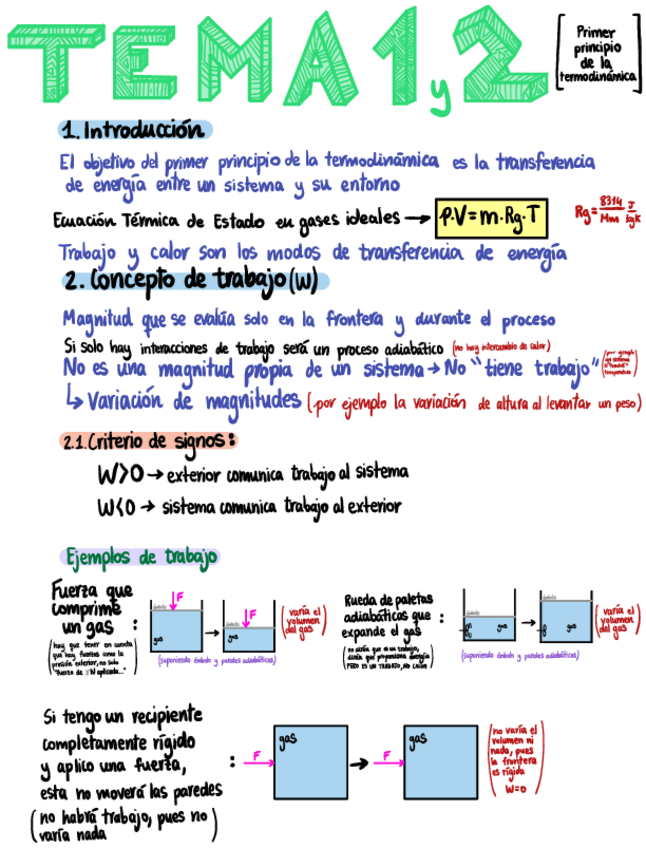 TEMA 1 y 2
Primer
principio
de la
termodinámica
1. Introducción
El objetivo del primer principio de la termodinámica es la transferencia
de energía entre un sistema y su entorno
Ecuación Térmica de Estado en gases ideales → P·V=m·Rg·T
Rg = 8314/Mm J/kgK
Trabajo y calor son los modos de transferencia de energía
2. Concepto de trabajo (W)
Magnitud que se evalúa solo en la frontera y durante el proceso
Si solo hay interacciones de trabajo será un proceso adiabático (no hay intercambio de calor)
No es una magnitud propia de un sistema → No "tiene trabajo"
(por ejemplo
un sistema
sí "tiene"
temperatura)
↳ Variación de magnitudes (por ejemplo la variación de altura al levantar un peso)
2.1. Criterio de signos:
W>0 → exterior comunica trabajo al sistema
W<0 → sistema comunica trabajo al exterior
Ejemplos de trabajo
Fuerza que
comprime
un gas :
(hay que tener en cuenta
que hay fuerzas como la
presión exterior, no solo
"fuerza de N aplicada...")
F
émbolo
gas
→
F
émbolo
gas
(varía el
volumen
del gas)
(suponiendo émbolo y paredes adiabáticas)
Rueda de paletas
adiabáticas que
expande el gas :
(no diría que es un trabajo,
diría que proporciona energía
PERO ES UN TRABAJO, NO CALOR)
émbolo
gas
→
émbolo
gas
(varía el
volumen
del gas)
(suponiendo émbolo y paredes adiabáticas)
Si tengo un recipiente
completamente rígido
y aplico una fuerza, :
esta no moverá las paredes
(no habrá trabajo, pues no
varía nada)
F
gas
→
F
gas
(no varía el
volumen ni
nada, pues
la frontera
es rígida
W=0)